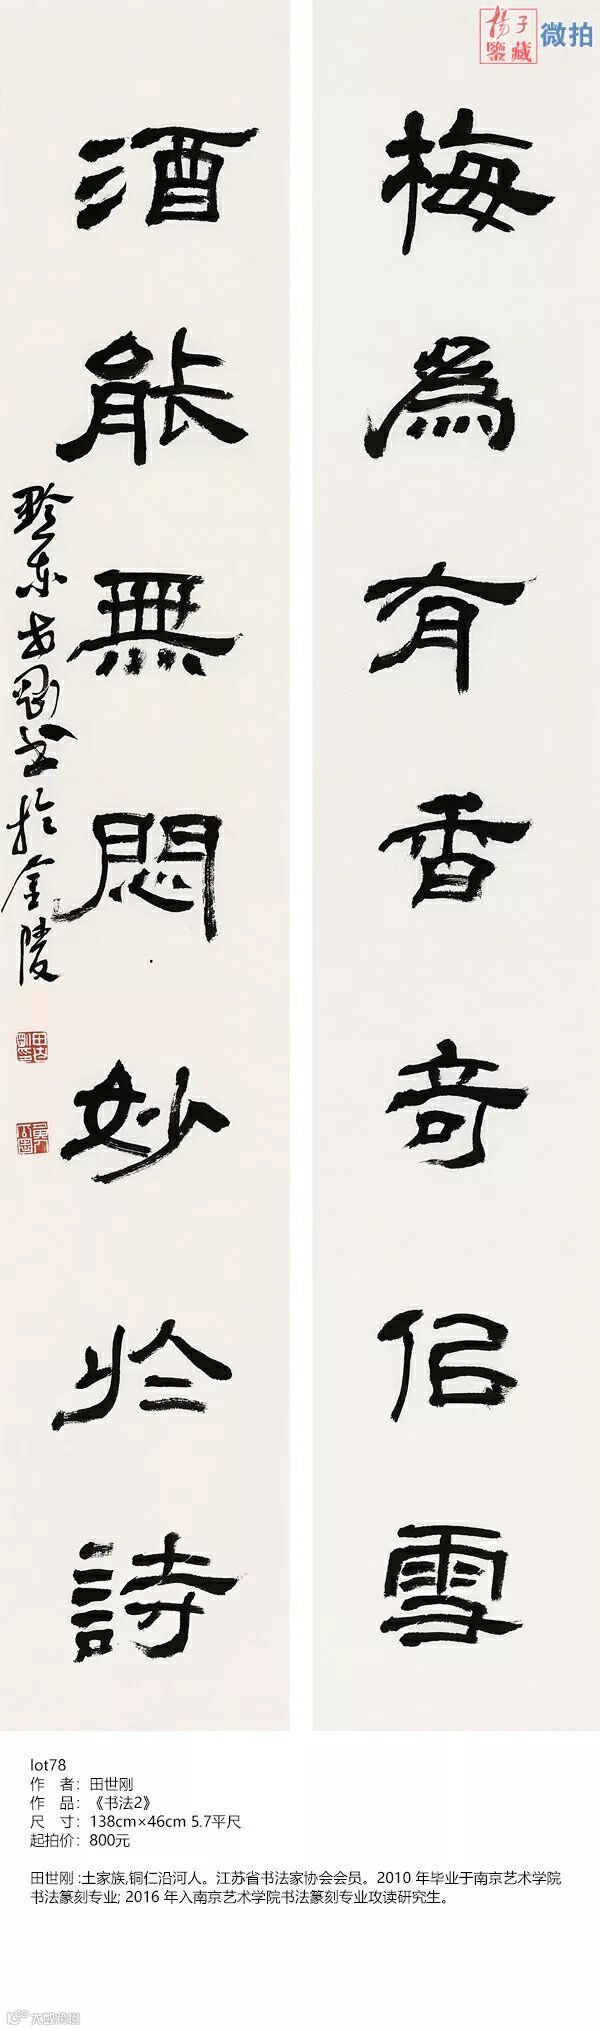 揚子
鑒藏
微拍
梅為有香奇似雪
酒能無悶妙於詩
黔東世剛书於金陵
lot78
作 者：田世刚
作 品：《书法2》
尺 寸：138cm×46cm 5.7平尺
起拍价：800元
田世刚 :土家族,铜仁沿河人。江苏省书法家协会会员。2010 年毕业于南京艺术学院
书法篆刻专业; 2016 年入南京艺术学院书法篆刻专业攻读研究生。
大数跨境